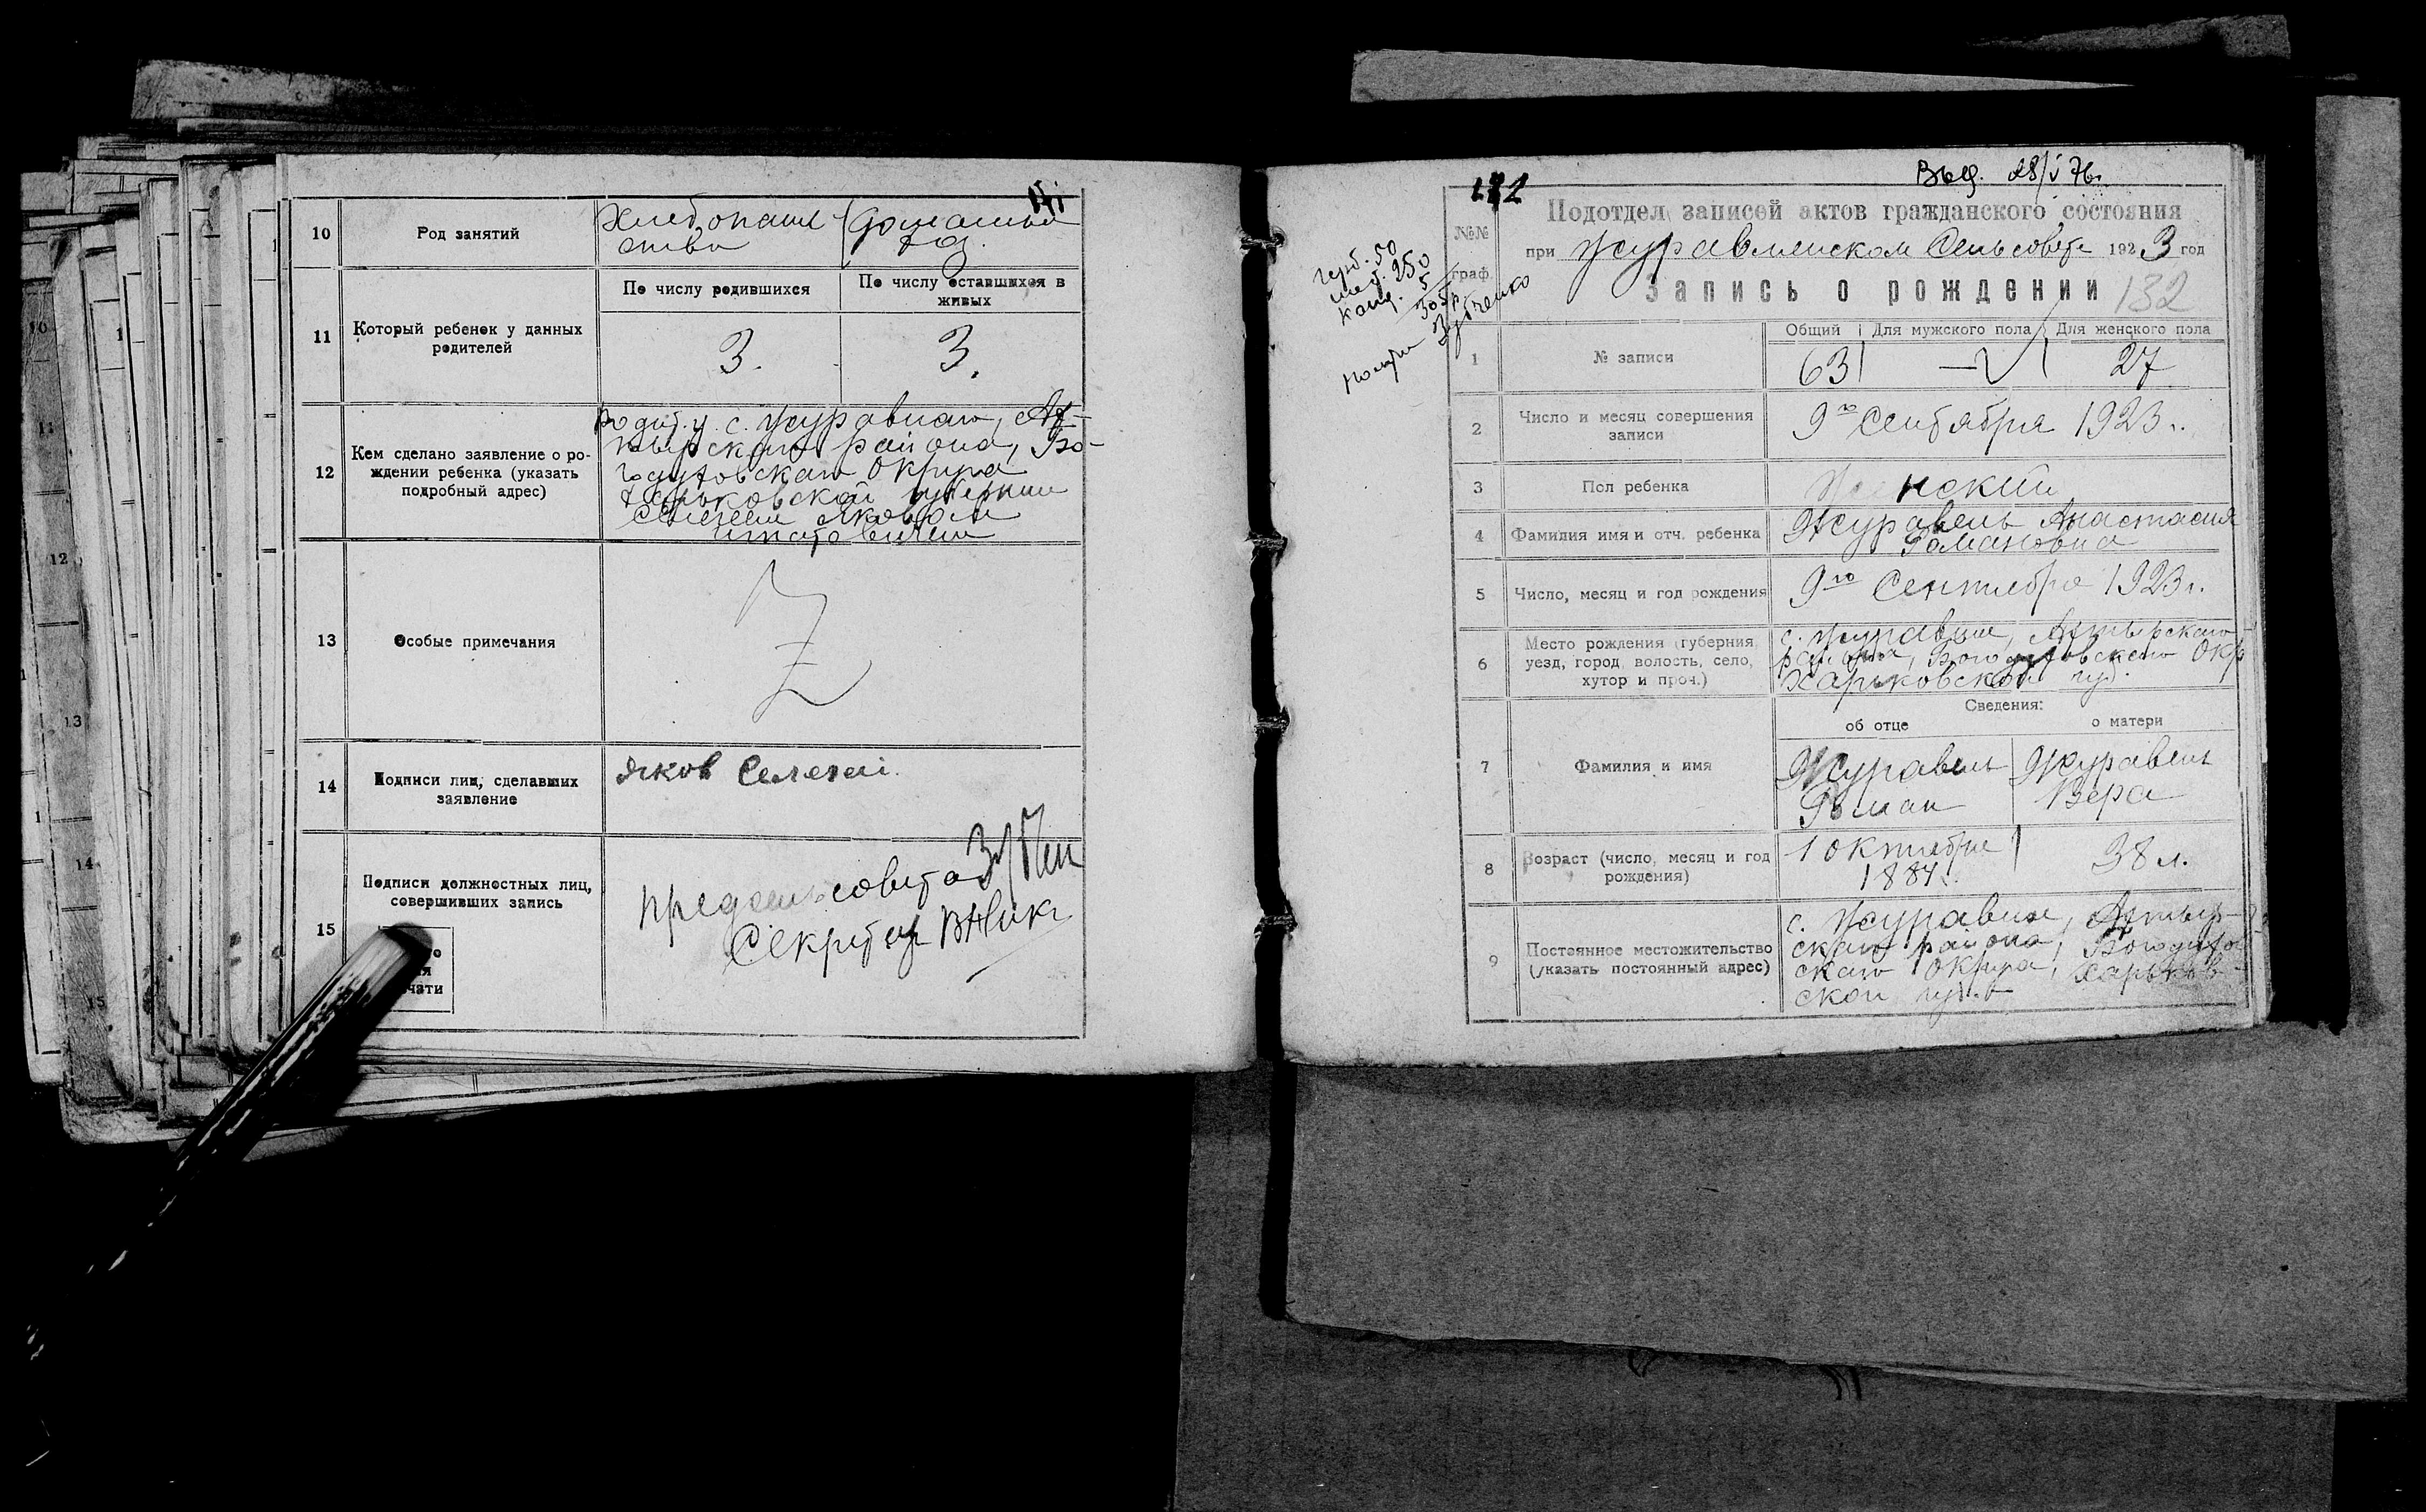 10
Род занятий
Хлебопаше
ство
Домашния
хоз.
11
Который ребенок у данных
родителей
По числу родившихся
По числу оставшихся в
живых
3.
3.
12
Кем сделано заявление о ро-
ждении ребенка (указать
подробный адрес)
с. Журавного, Ах-
тырского района, Бо-
годуховского Округа
Харьковской губернии
Яковом
13
Особые примечания
14
Подписи лиц, сделавших
заявление
Яков Селезень
15
Подписи должностных лиц,
совершивших запись
чати
Предсельсовета
Секретар
172
Выд. 28/V 76г.
№№
граф.
Подотдел записей актов гражданского состояния
при Журавленском Сельсовете 1923 год
Запись о рождении
132
герб. 50
250
канц. 5
305 р
Зубченко
1
№ записи
Общий
Для мужского пола
Для женского пола
63
—
27
2
Число и месяц совершения
записи
9го Сентября 1923 г.
3
Пол ребенка
Женский
4
Фамилия имя и отч. ребенка
Журавель Анастасия
Романовна
5
Число, месяц и год рождения
9го Сентября 1923 г.
6
Место рождения (губерния,
уезд, город, волость, село,
хутор и проч.)
с. Журавное, Ахтырского
района, Богодуховского Окр
Харьковской губ.
Сведения:
об отце
о матери
7
Фамилия и имя
Журавель
Роман
Журавель
Вера
8
Возраст (число, месяц и год
рождения)
1 октября
1884 г.
38 л.
9
Постоянное местожительство
(указать постоянный адрес)
с. Журавное, Ахтыр-
скаго района, Богодухов
скаго Округа, Харьков-
ской губ.